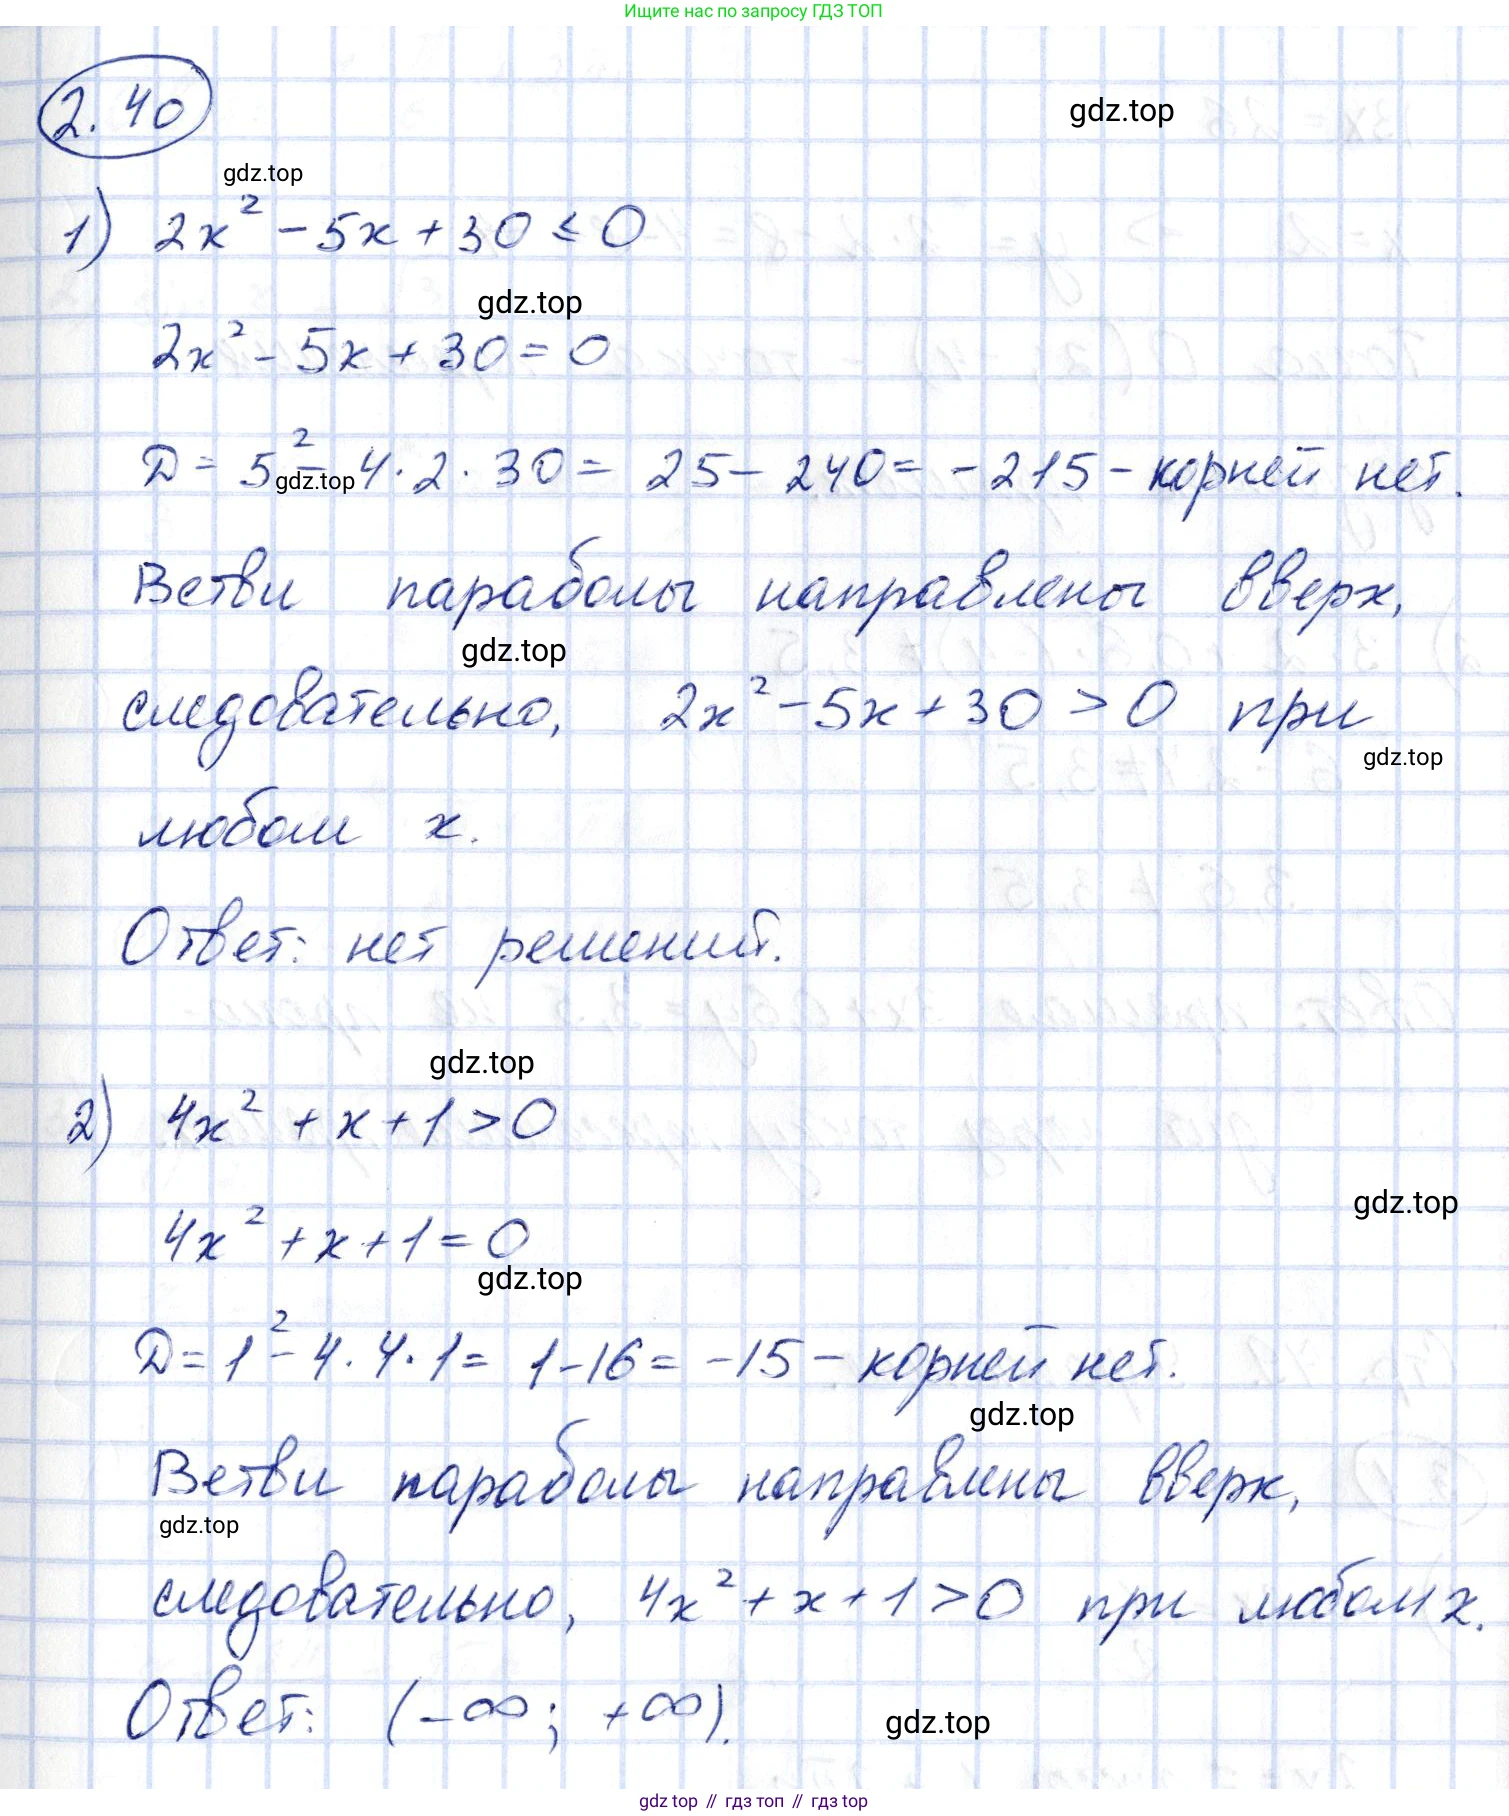 Ищите нас по запросу ГДЗ ТОП
2.40
gdz.top
gdz.top
1) 2x² - 5x + 30 ≤ 0
gdz.top
2x² - 5x + 30 = 0
D = 5² - 4·2·30 = 25 - 240 = -215 - корней нет.
gdz.top
Ветви параболы направлены вверх,
gdz.top
следовательно, 2x² - 5x + 30 > 0 при
gdz.top
любом x.
Ответ: нет решений.
gdz.top
2) 4x² + x + 1 > 0
gdz.top
4x² + x + 1 = 0
gdz.top
D = 1² - 4·4·1 = 1 - 16 = -15 - корней нет.
gdz.top
Ветви параболы направлены вверх,
gdz.top
следовательно, 4x² + x + 1 > 0 при любом x.
Ответ: (-∞; +∞).
gdz.top
gdz top // гдз топ // гдз top